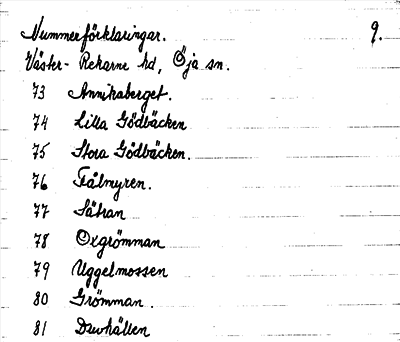 Nummerförklaringar. 9.
Väster-Rekarne hd, Öja sn.
73 Annikaberget.
74 Lilla Gödbäcken
75 Stora Gödbäcken.
76 Fålmyren.
77 Sätran
78 Oxgrömman
79 Uggelmossen
80 Grömman.
81 Duvhällen